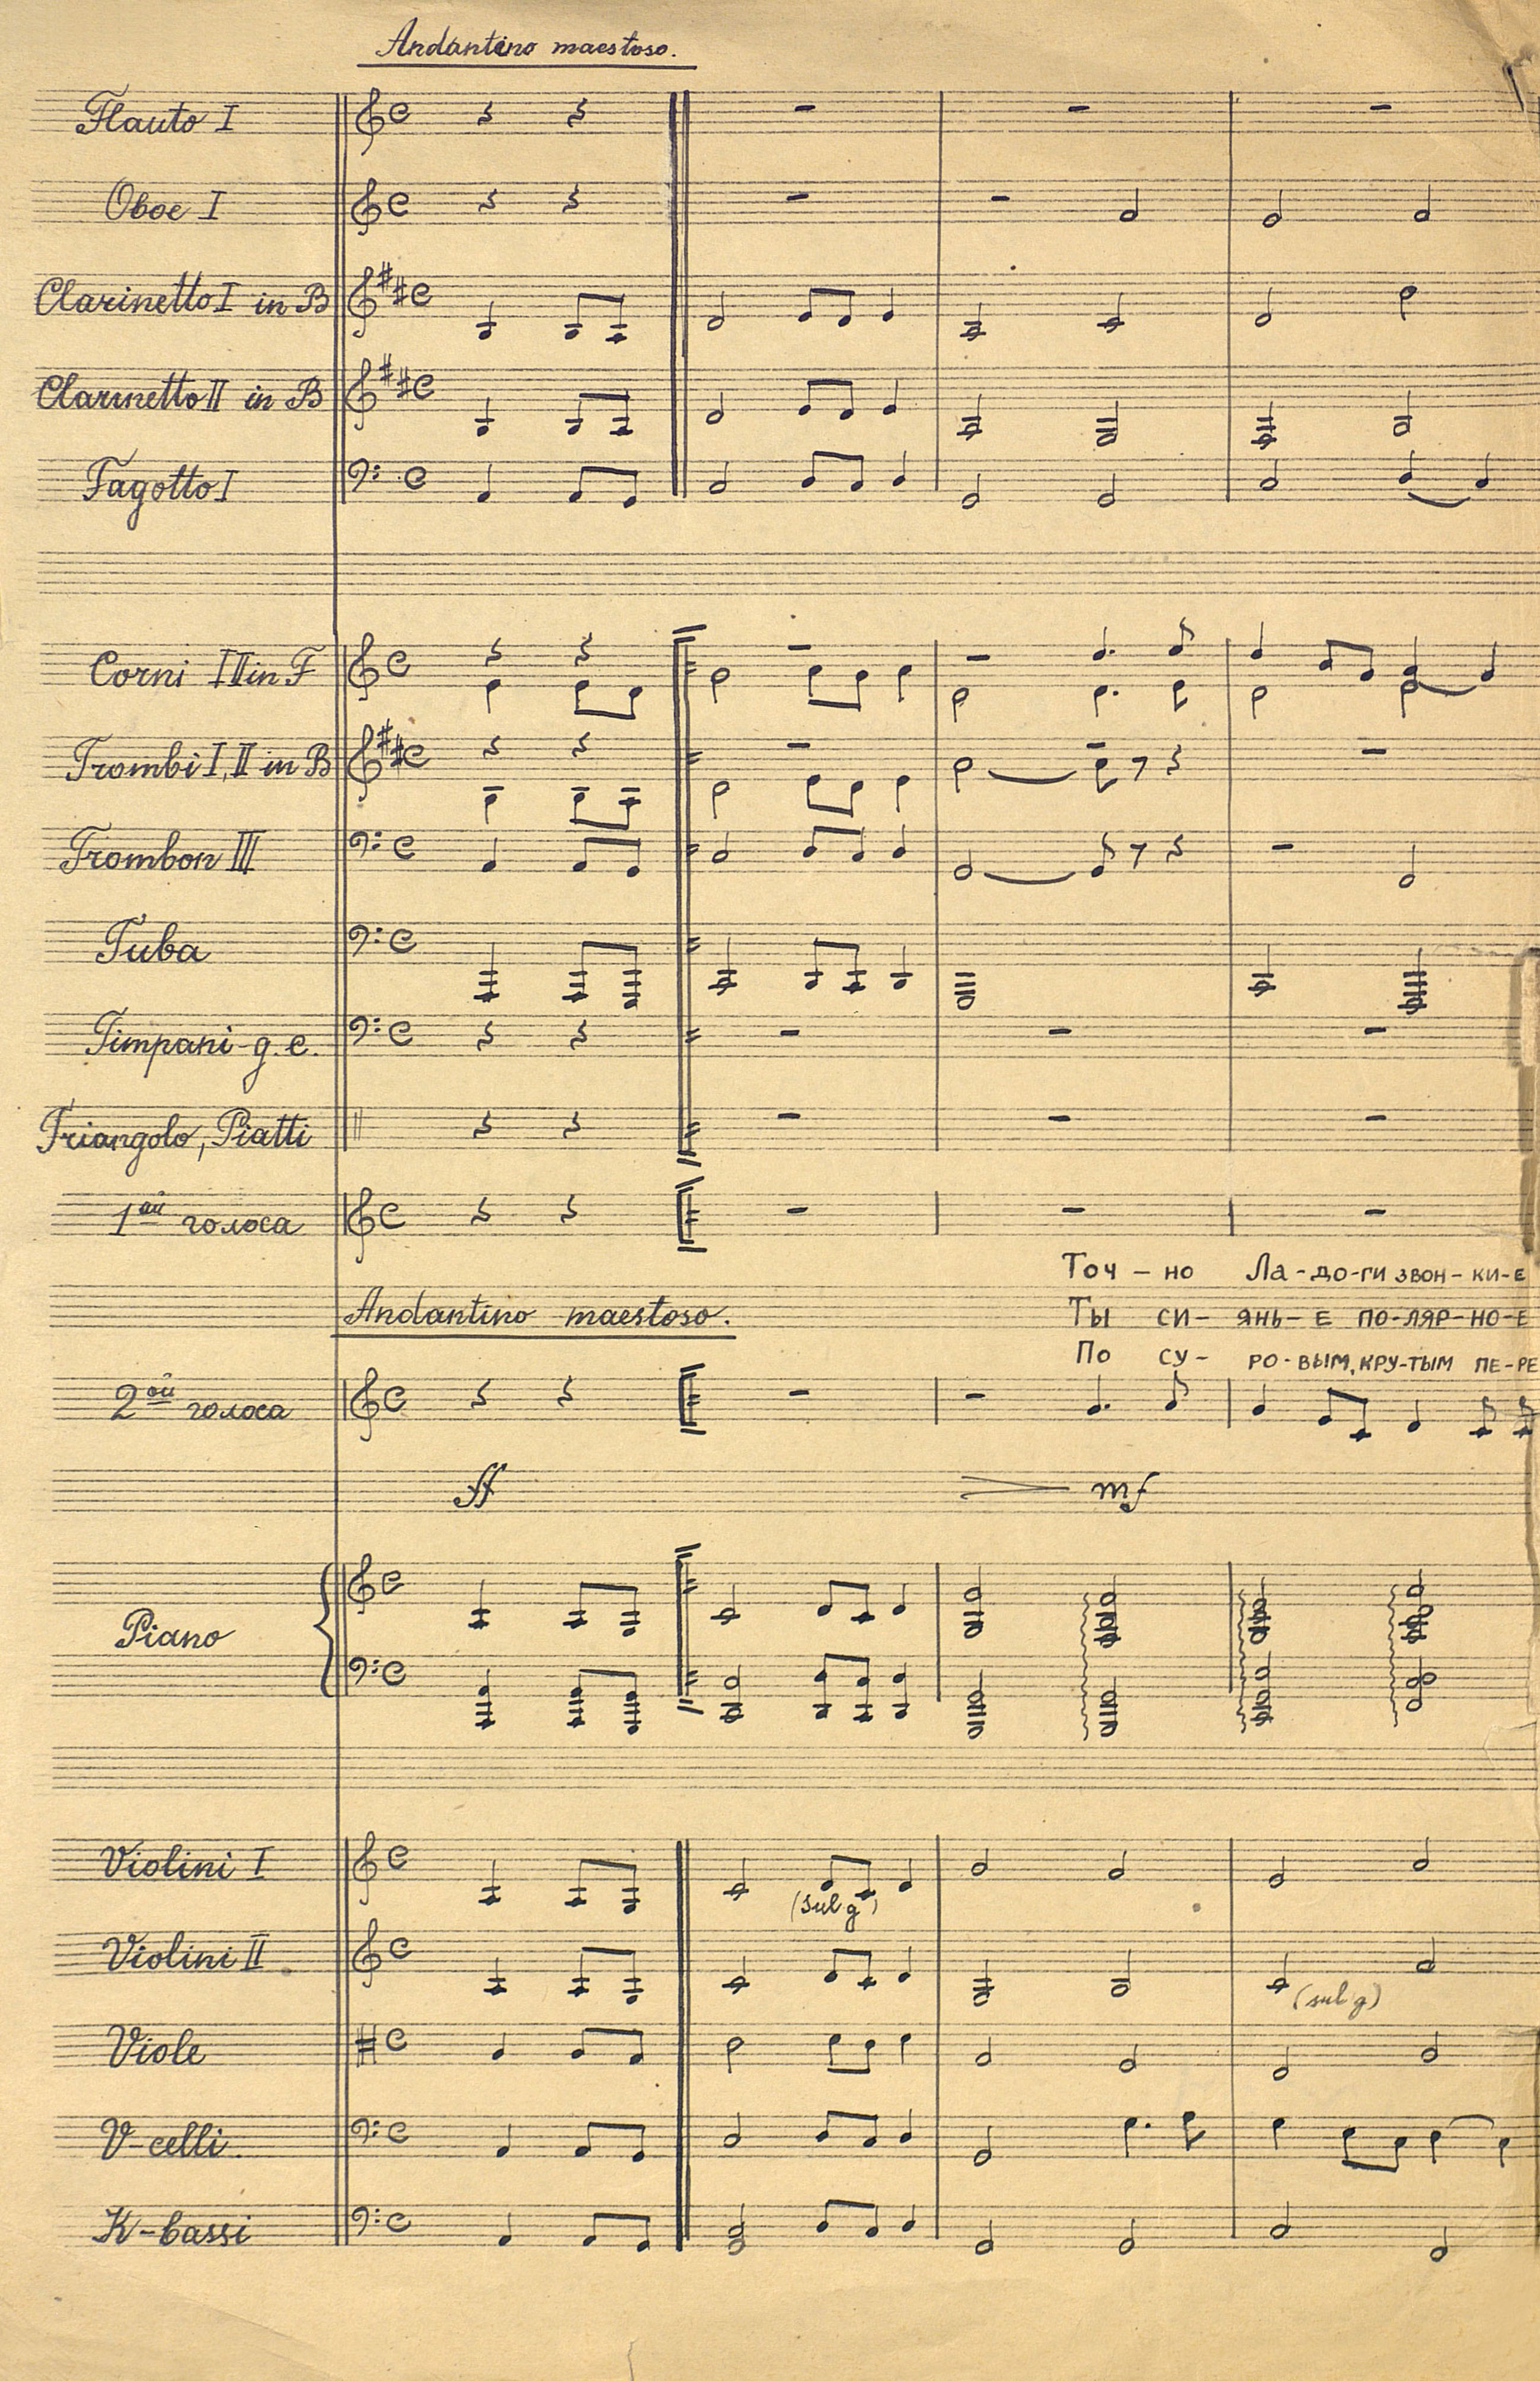 Andantino maestoso.
Flauto I
Oboe I
Clarinetto I in B
Clarinetto II in B
Fagotto I
Corni I II in F
Trombi I, II in B
Trombon III
Tuba
Timpani - g. c.
Triangolo, Piatti
1ый голоса
Точ – но Ла-до-ги звон-ки-е
Andantino maestoso.
Ты си- янь-е по-ляр-но-е
По су- ро-вым, кру-тым пе-ре
2ой голоса
ff mf
Piano
Violini I
(sul g)
Violini II
(sul g)
Viole
V-celli.
K-bassi